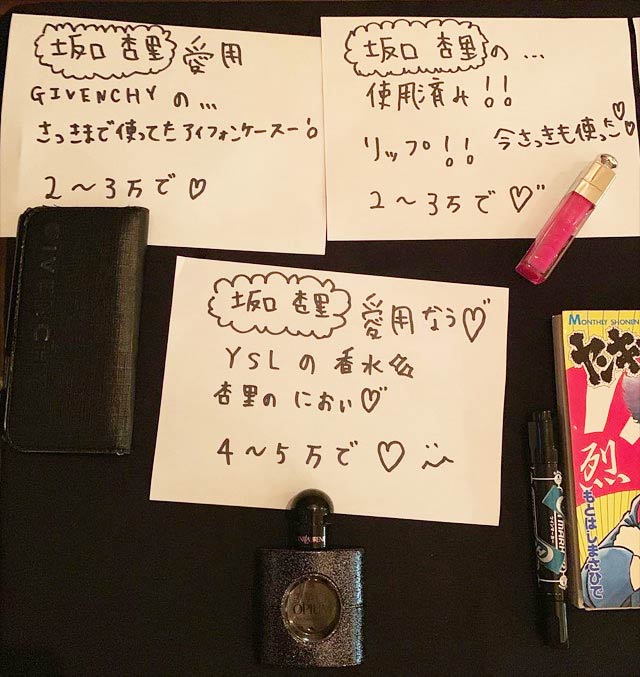 坂口 杏里 愛用
GIVENCHY の ...
さっきまで使ってたアイフォンケースー!
2〜3万で♡
坂口 杏里の ...
使用済み!!
リップ!! 今さっきも使った♡♡
2〜3万で♡"
坂口 杏里 愛用なう♡
YSLの香水
杏里のにおい♡
4〜5万で♡
GIVENCHY
OPIUM
MONTHLY SHONEN
ヤンキ
烈
おとはしまさひで